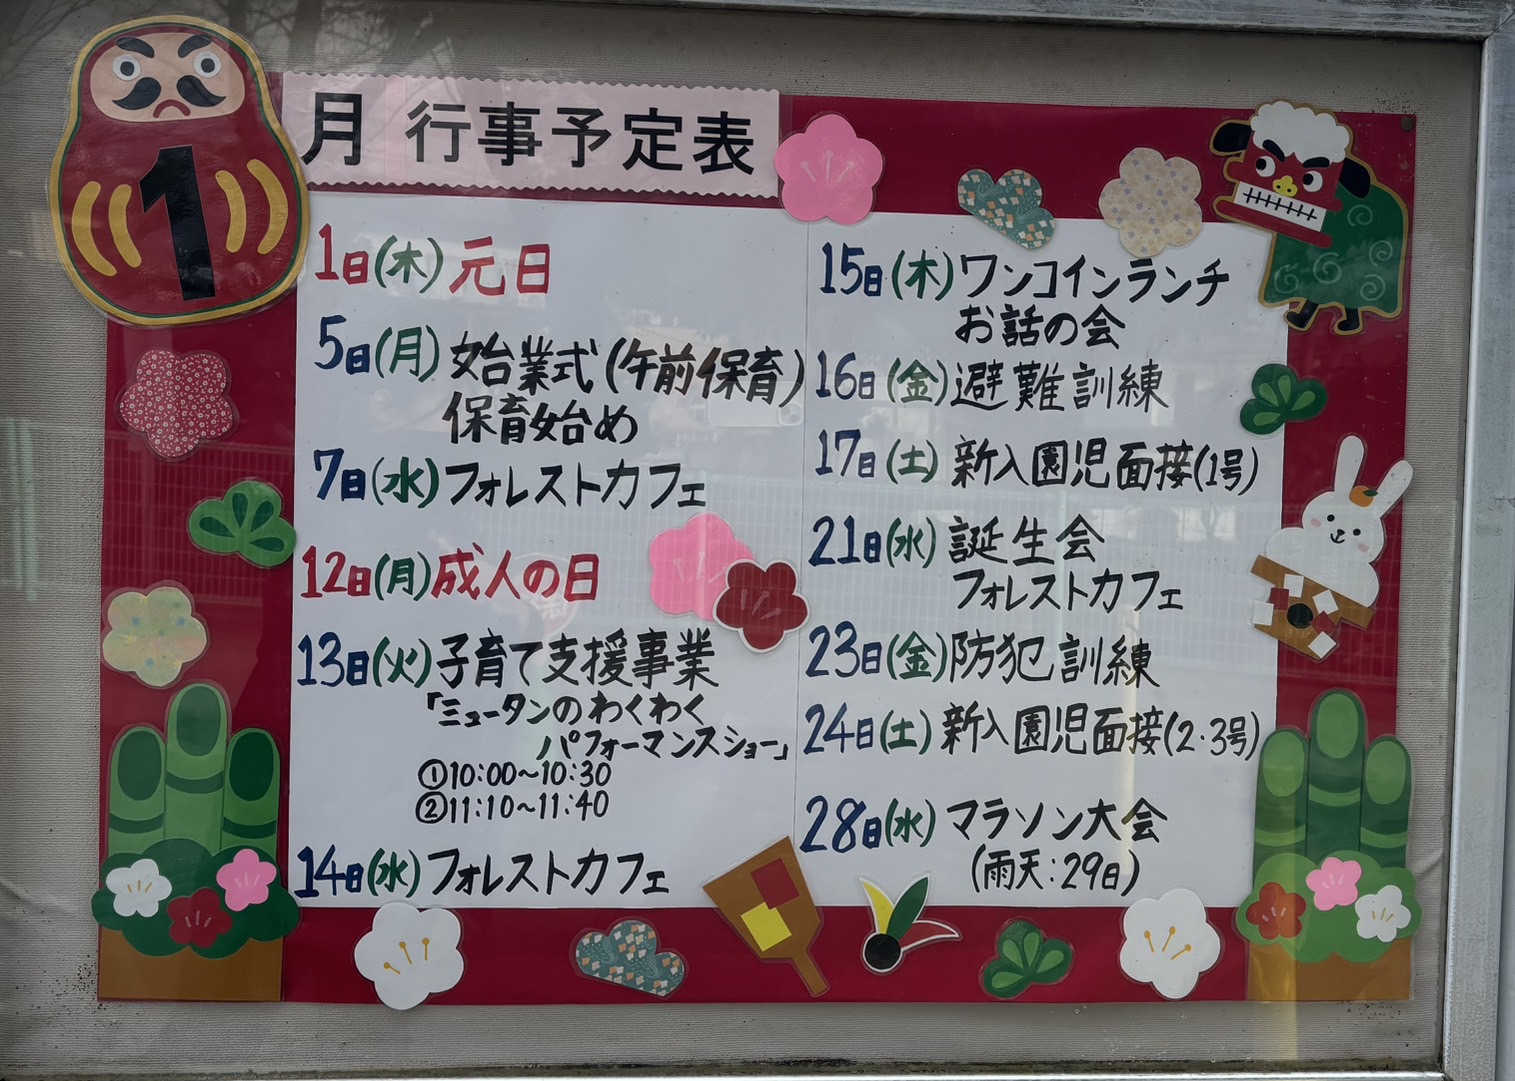 1月 行事予定表
1日(木) 元日
5日(月) 始業式(午前保育)
保育始め
7日(水) フォレストカフェ
12日(月) 成人の日
13日(火) 子育て支援事業
「ミュータンのわくわく
パフォーマンスショー」
①10:00～10:30
②11:10～11:40
14日(水) フォレストカフェ
15日(木) ワンコインランチ
お話の会
16日(金) 避難訓練
17日(土) 新入園児面接(1号)
21日(水) 誕生会
フォレストカフェ
23日(金) 防犯訓練
24日(土) 新入園児面接(2・3号)
28日(水) マラソン大会
(雨天:29日)